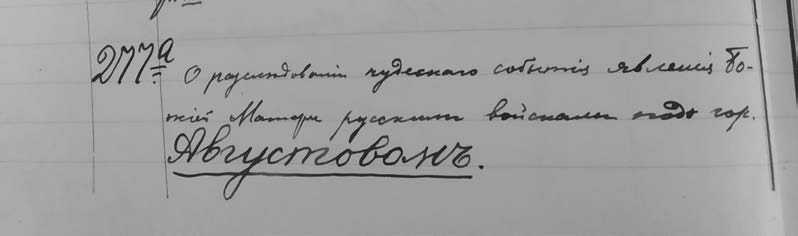 277а О разслѣдованіи чудеснаго событія явленія Бо-
жіей Матери русскимъ войскамъ подъ гор.
Августовомъ.